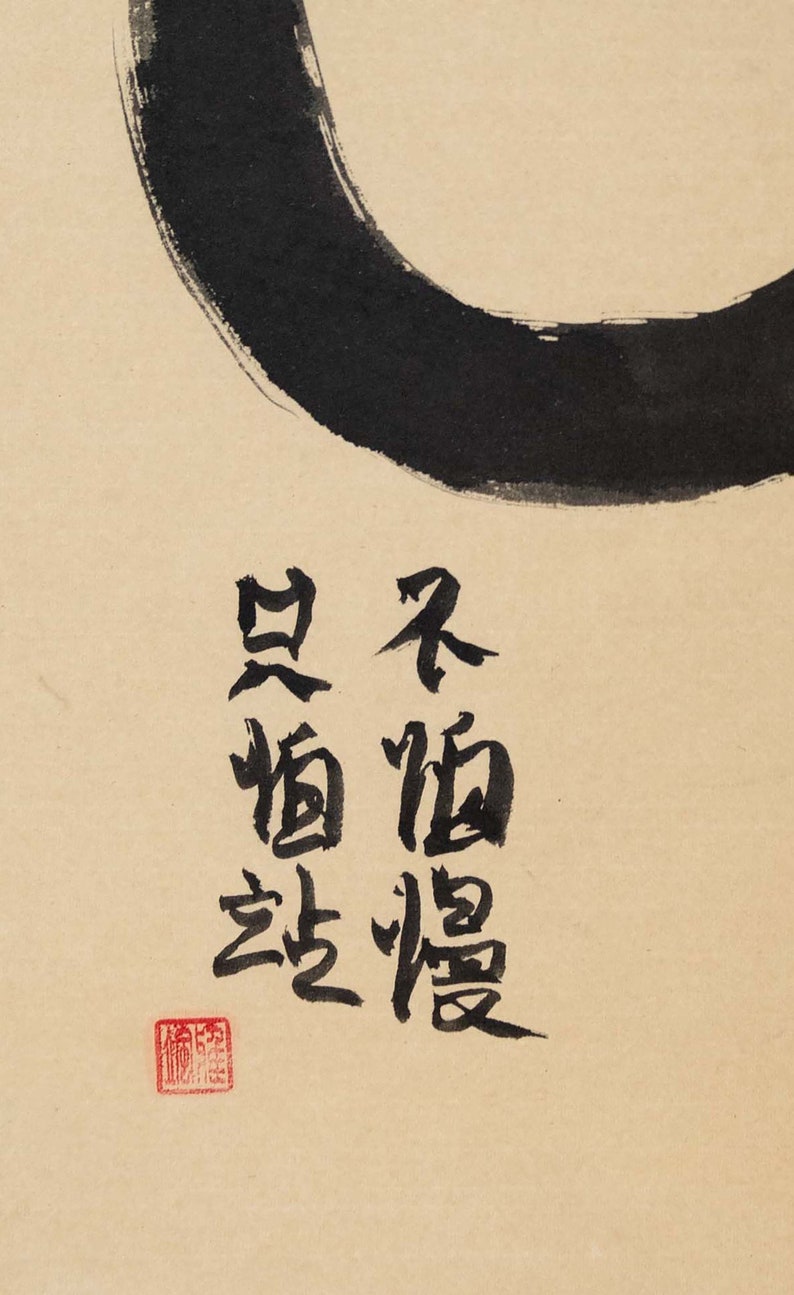 不怕慢
只怕站